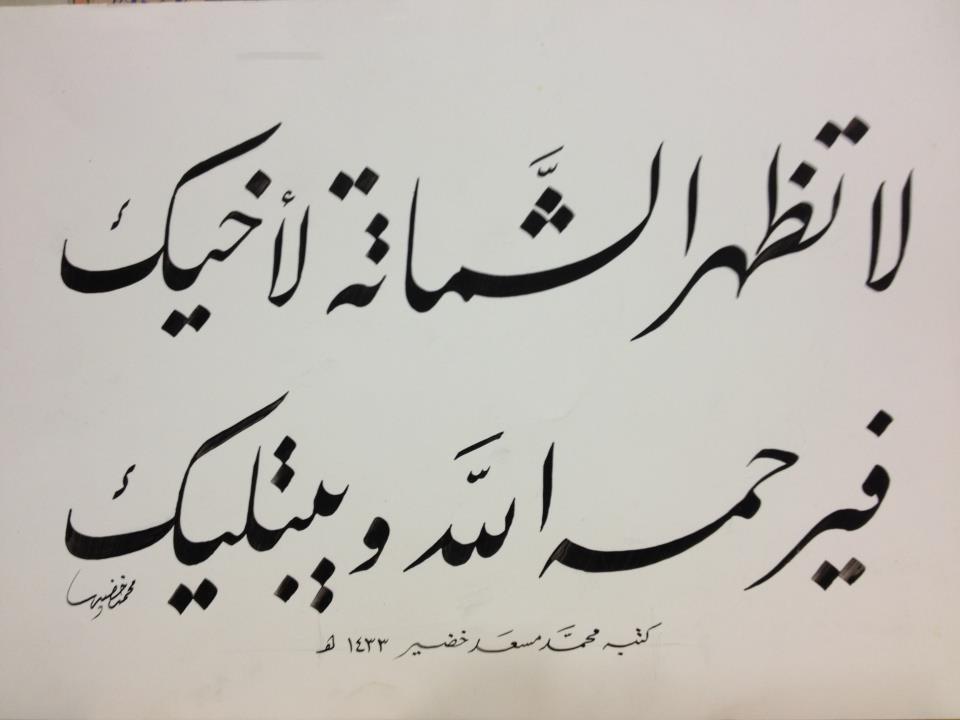 لا تظهر الشَّماتة لأخيك
فيرحمه اللَّه ويبتليك
كتبه محمَّد مسعد خضير ١٤٣٣ هـ